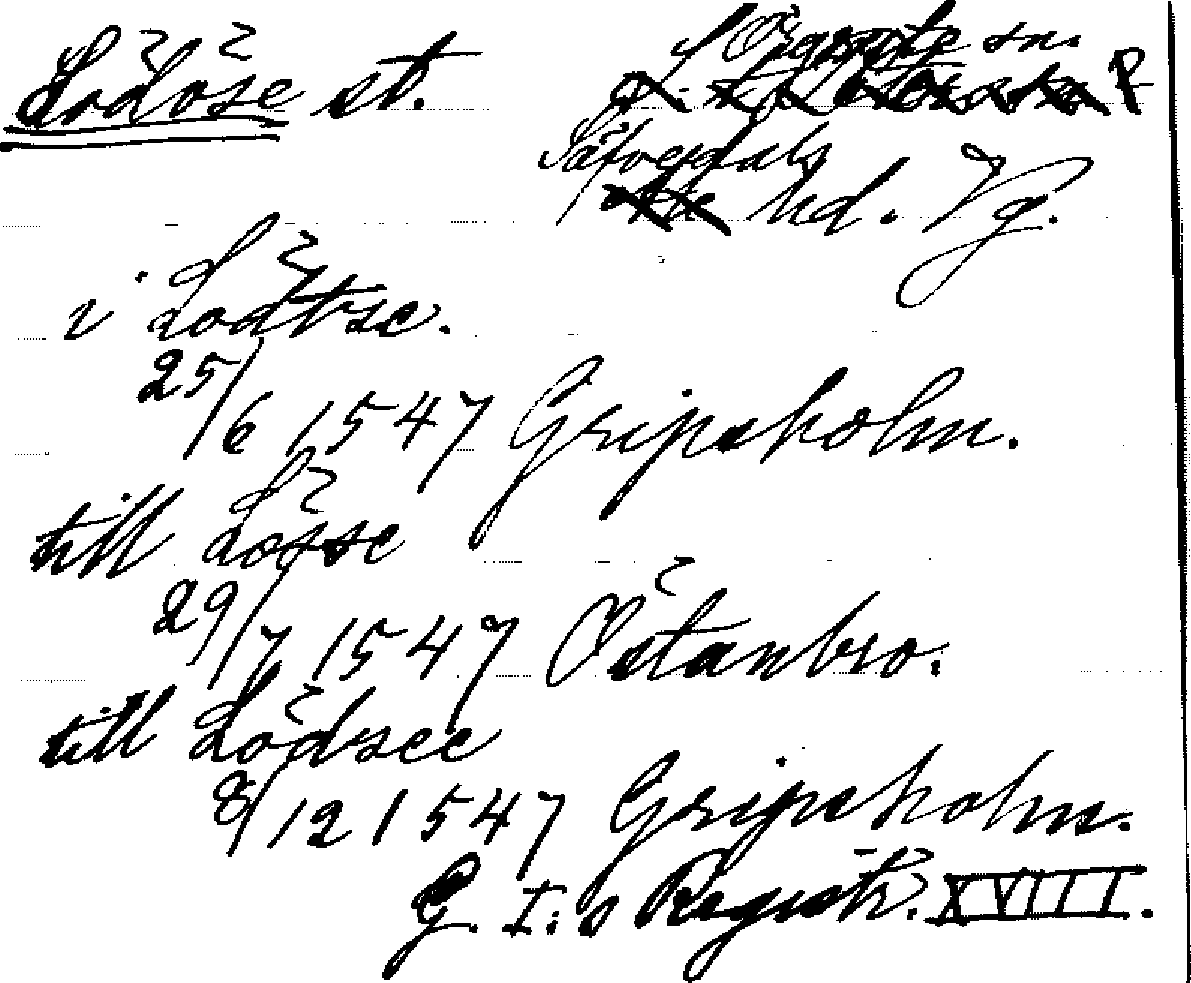 Lödöse st.
Örgryte sn.
Sävedals
hd. Vg.
i Lödtse.
25/6 1547 Gripsholm.
till Lösse
29/7 1547 Östanbro.
till Lödsee
8/12 1547 Gripsholm.
G. I:s Registr. XVIII.